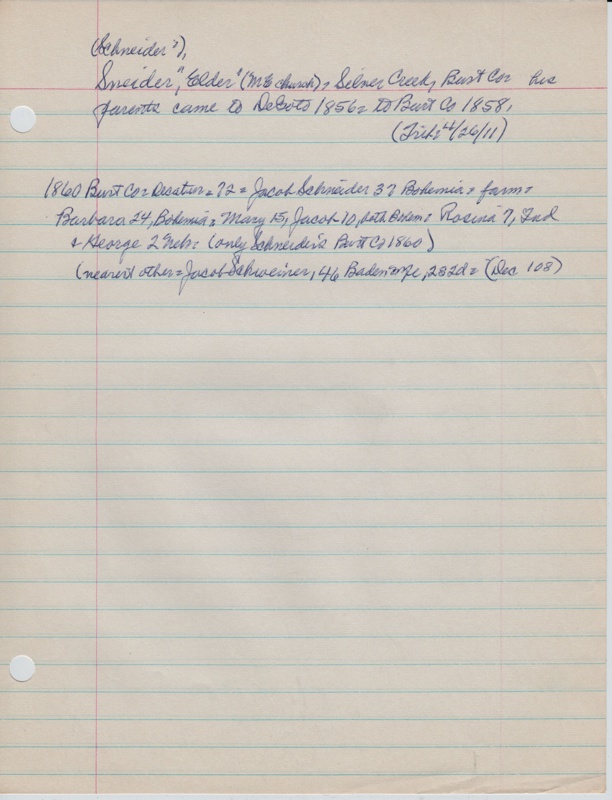 (Schneider?),
Sneider, "Elder" (ME church), Silver Creek, Burt Co= his
parents came to DeSoto 1856= to Burt Co 1858,
(Trib= 4/26/11)
1860 Burt Co= Decatur= 72= Jacob Schneider 37 Bohemia= farm=
Barbara 24, Bohemia= Mary 15, Jacob 10, both Bohem= Rosina 7, Ind
& George 2 Neb= (only Schneider's Burt Co 1860)
(nearest other= Jacob Schweiner, 46 Baden= 282d= (Dec 108)